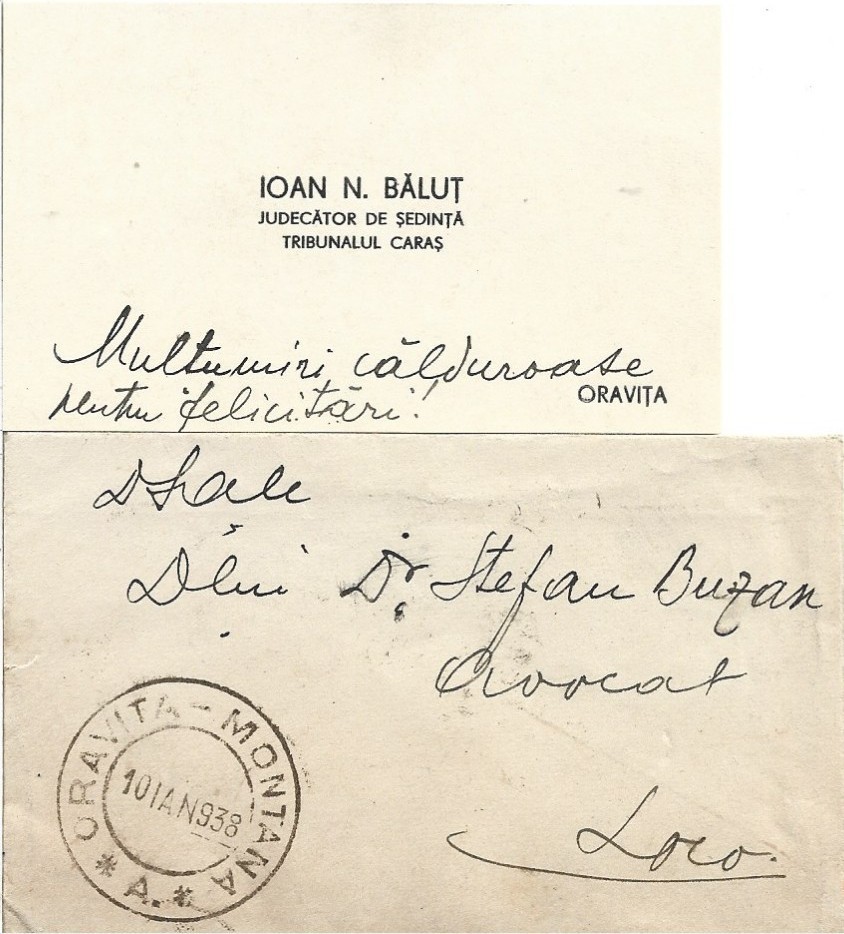 IOAN N. BĂLUȚ
JUDECĂTOR DE ȘEDINȚĂ
TRIBUNALUL CARAȘ
Multumiri călduroase
ORAVIȚA
pentru felicitări!
DSale
Dlui Dr. Stefan Buzan
avocat
Loco.
ORAVITA-MONTANA
* A. *
10IAN938